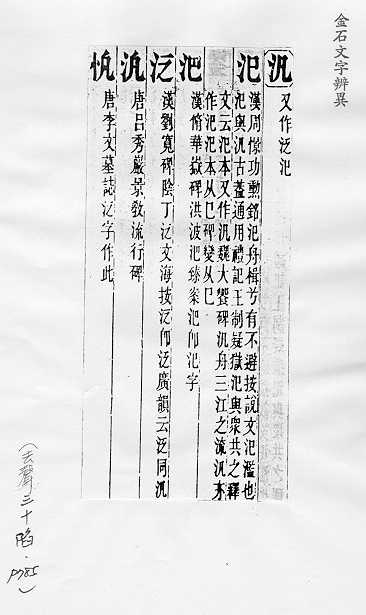 金石文字辨異
汎 又作泛氾
氾 漢周憬功勳銘氾舟楫兮有不避按說文氾濫也
氾與汎古蓋通用禮記王制疑獄氾與衆共之釋
文云氾本又作汎魏大饗碑汎舟三江之流汎
作汜氾本从㔾碑變从巳
汜 漢脩華嶽碑洪波汜臻案汜即氾字
泛 漢劉寬碑陰丁泛文海按泛即泛廣韻云泛同汎
汎 唐呂秀巖景敎流行碑
唐李文墓誌泛字作此
(去聲三十陷．P785)